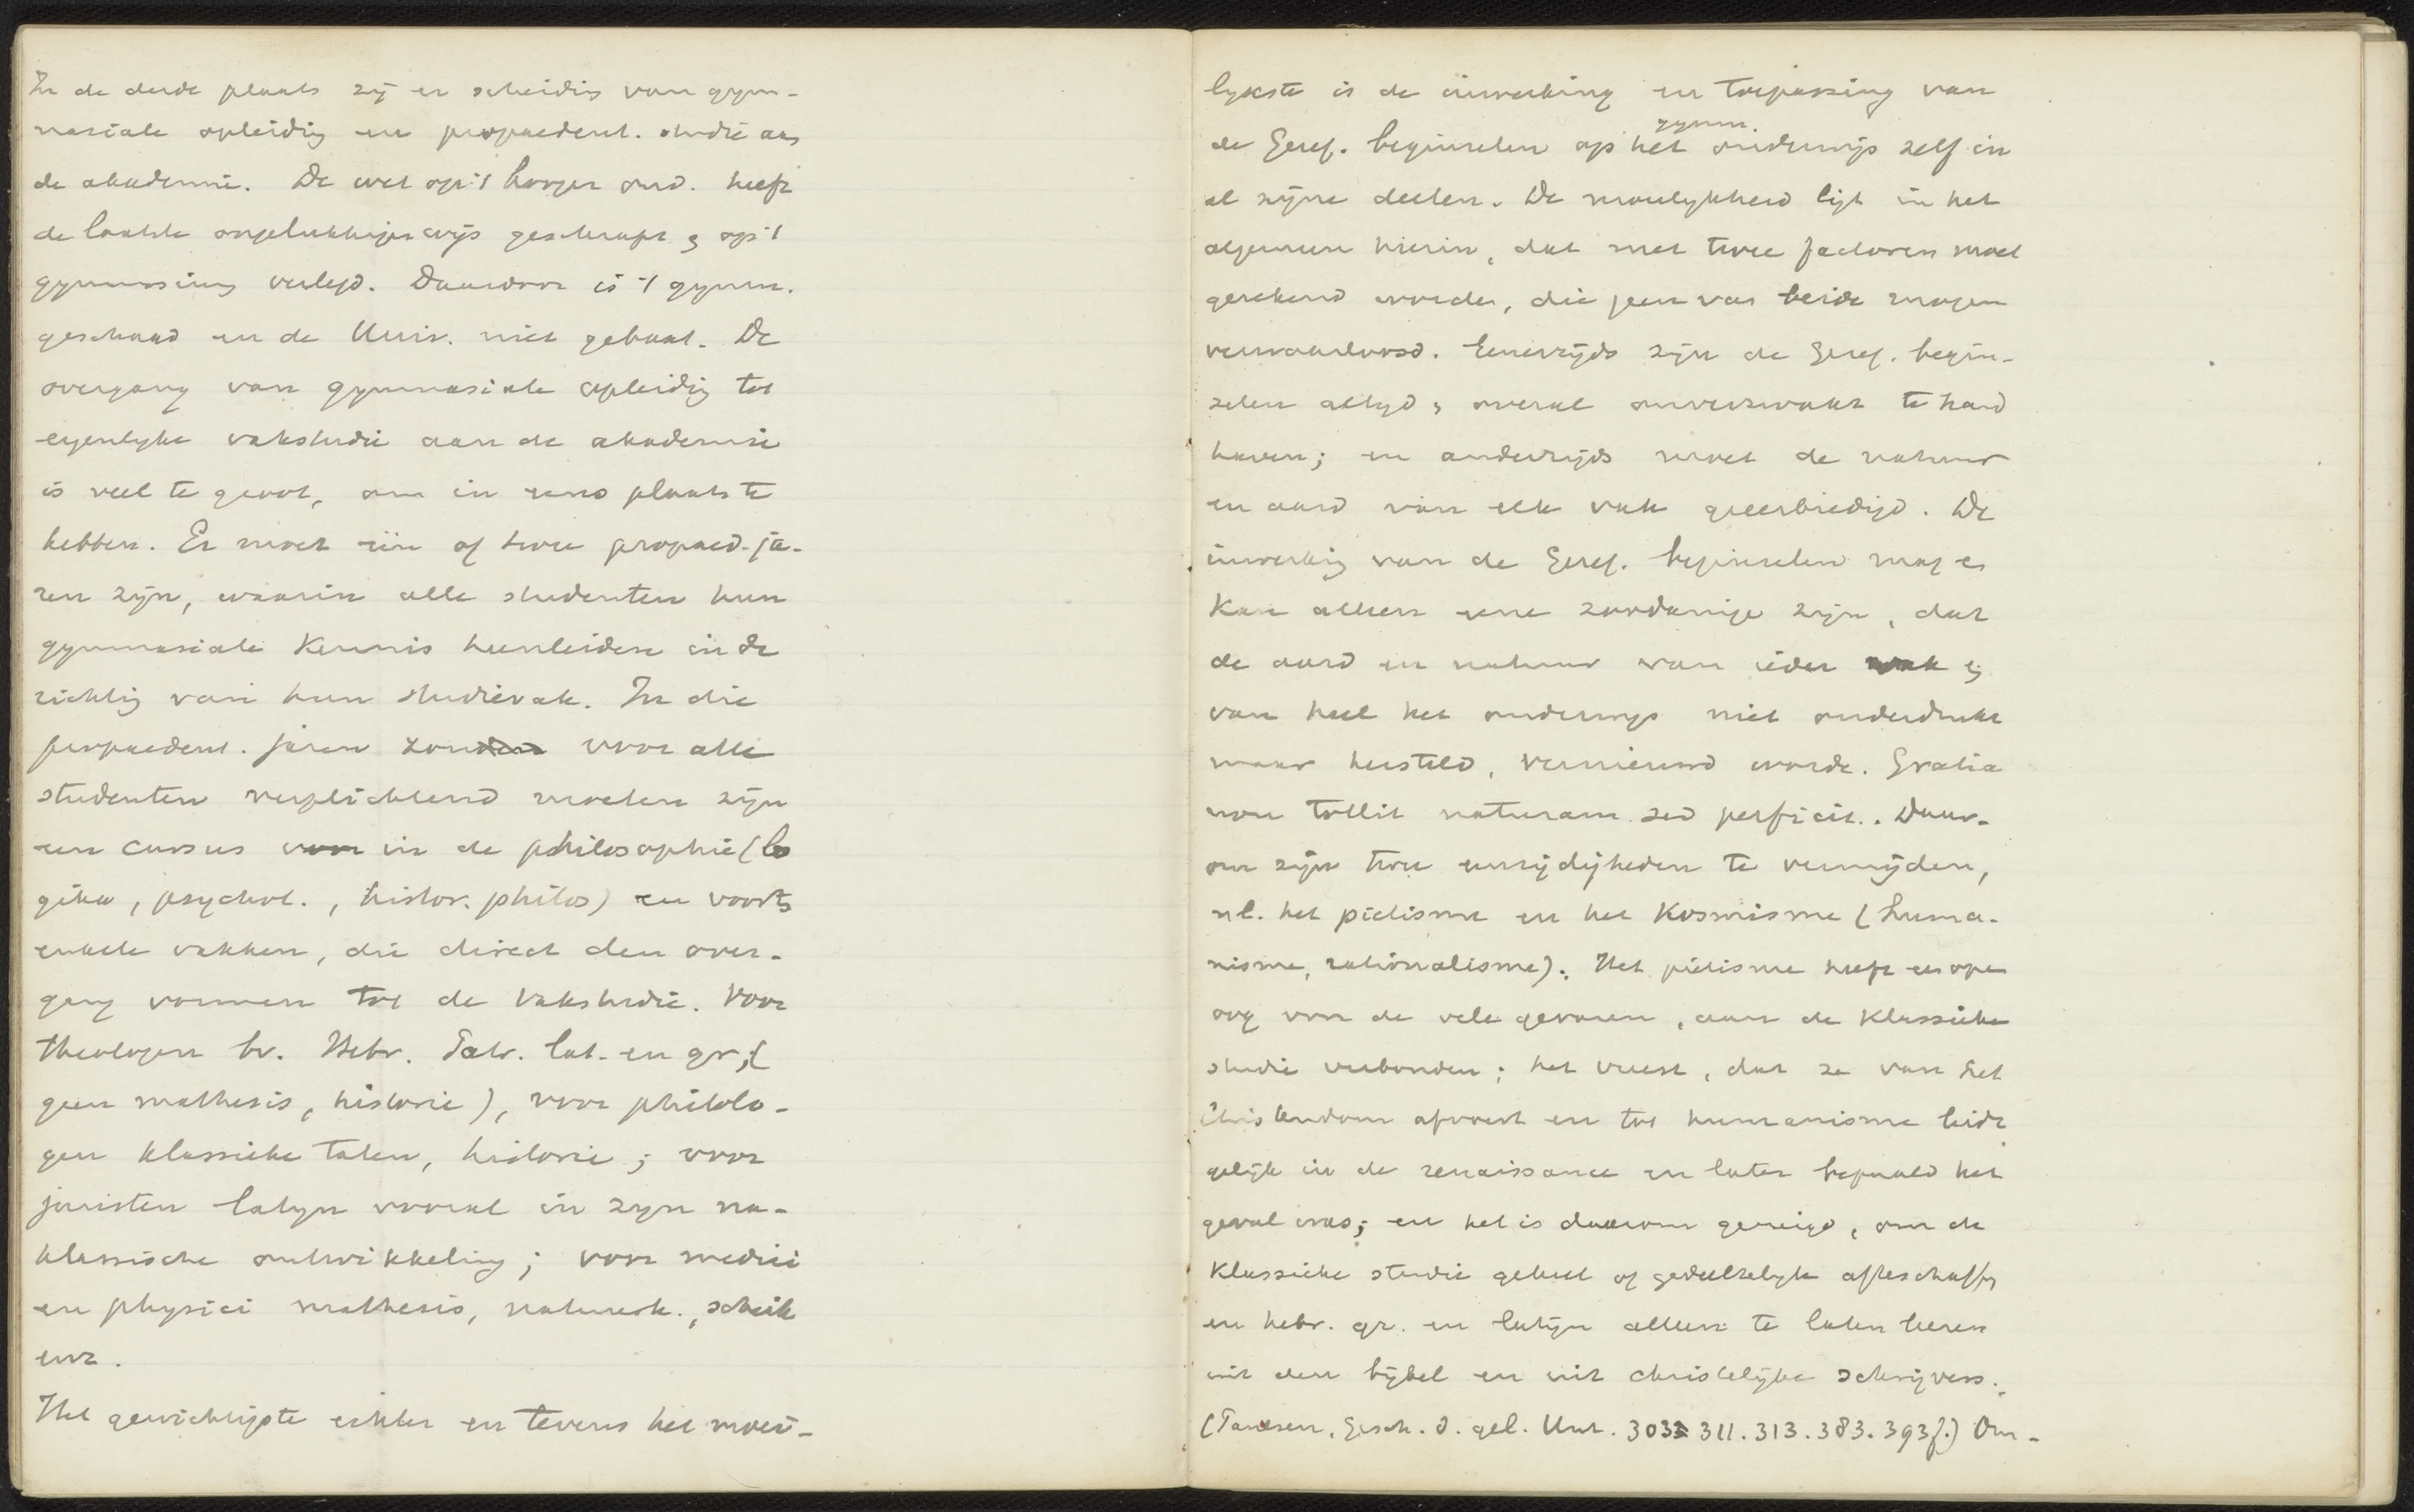 In de derde plaats zij er scheiding van gym-
nasiale opleiding en propaedeut. studie aan
de akademie. De wet op 't hooger ond. heeft
de laatste ongelukkigerwijs geschrapt en op 't
gymnasium verlegd. Daardoor is 't gymn.
geschaad en de Univ. niet gebaat. De
overgang van gymnasiale opleiding tot
eigenlyke vakstudie aan de akademie
is veel te groot, om in eens plaats te
hebben. Er moet één of twee propaed. ja-
ren zijn, waarin alle studenten hun
gymnasiale kennis heenleiden in de
richting van hun studievak. In die
propaedeut. jaren zou voor alle
studenten verplichtend moeten zijn
een cursus in de philosophie (lo
gika, psychol., histor. philos) en voorts
enkele vakken, die direct den over-
gang vormen tot de vakstudie. Voor
theologen bv. Hebr. lat. en gr. (
geen mathesis, historie), voor philolo-
gen klassieke talen, historie; voor
juristen latyn vooral in zyn na-
klassische ontwikkeling; voor medici
en physici mathesis, natuurk., scheik
enz.
Het gewichtigste echter en tevens het moei-
lykste is de inwerking en toepassing van
de Geref. beginselen op het gymn. onderwijs zelf in
al zijne deelen. De moeilykheid ligt in het
algemeen hierin, dat met twee factoren moet
gerekend worden, die geen van beide mogen
verwaarloosd. Eenerzijds zijn de Geref. begin-
selen altyd en overal onverzwakt te hand
haven; en anderzijds moet de natuur
en aard van elk vak geëerbiedigd. De
inwerking van de Geref. beginselen mag en
kan alleen eene zoodanige zijn, dat
de aard en natuur van ieder vak en
van heel het onderwys niet onderdrukt
maar hersteld, vernieuwd worde. Gratia
non tollit naturam sed perficit. Daar-
om zijn twee eenzijdigheden te vermijden,
nl. het piëtisme en het Kosmisme (huma-
nisme, rationalisme). Het piëtisme heeft een open
oog voor de vele gevaren, aan de klassieke
studie verbonden; het vreest, dat ze van het
Christendom afvoert en tot humanisme leidt
gelijk in de renaissance en later bepaald het
geval was; en het is daarom geneigd, om de
klassieke studie geheel of gedeeltelyk afteschaffen
en hebr. gr. en latijn alleen te laten leeren
uit den bijbel en uit christelijke schrijvers.
(Paulsen, Gesch. d. gel. Unt. 303 311. 313. 383. 393f.) Om-